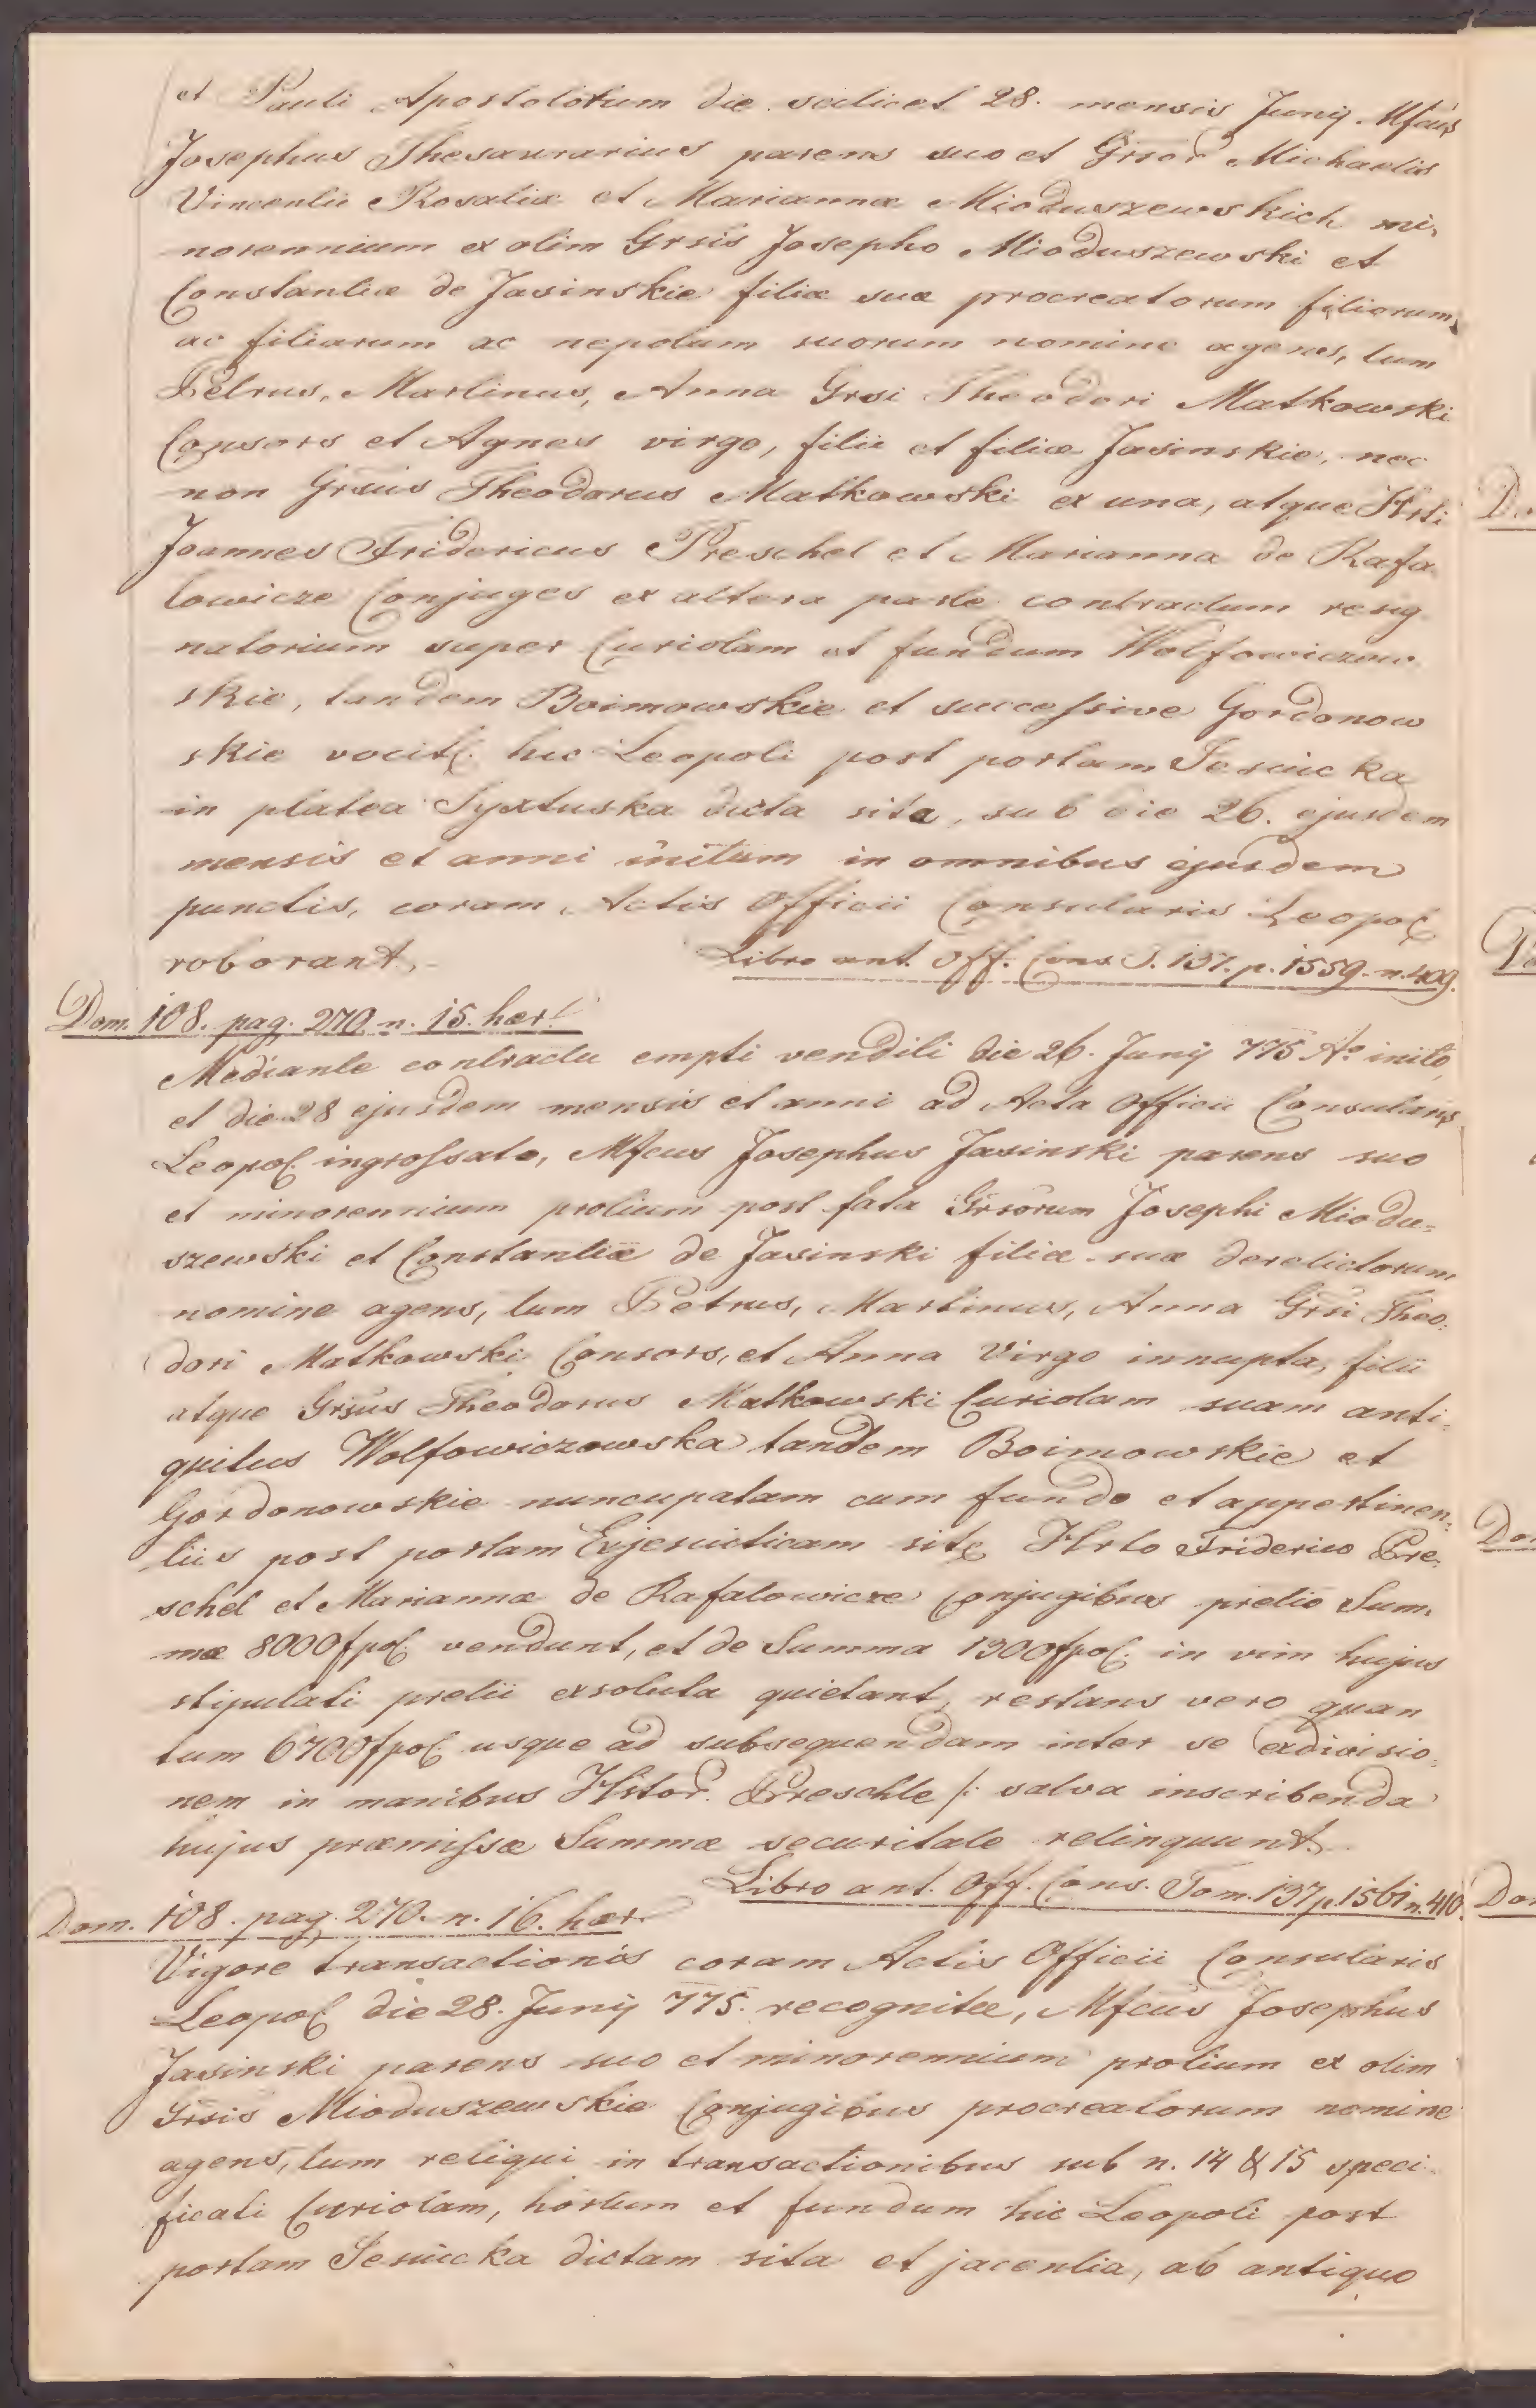 et Pauli Apostolorum die scilicet 28. mensis Junij. Mfcus
Josephus Thesaurarius parens suo et Grsor Michaelis
Vincentii Rosaliæ et Mariannæ Mioduszewskich mi,
norennium ex olim Grsis Josepho Mioduszewski et
Constantiæ de Jasinskie filiæ suæ procreatorum filiorum,
ac filiarum ac nepotum suorum nomine agens, tum
Petrus, Martinus, Anna Grsi Theodori Matkowski
Consors et Agnes virgo, filii et filiæ Jasinskie, nec
non Grsus Theodorus Matkowski ex una, atque Hrti
Joannes Fridericus Preschel et Marianna de Rafa
lowicze Conjuges ex altera parte contractum resig
natorium super Curiolam et fundum Wolfowiczow
skie, tandem Boimowskie et successive Gordonow
skie vocit. hic Leopoli post portam Jesuicka
in platea Syxtuska dicta sita, sub die 26. ejusdem
mensis et anni initum in omnibus ejusdem
punctis, coram Actis Officii Consularis Leopol
roborant.
Libro ant. Off. Cons T. 137. p. 1559. n. 409.
Dom. 108. pag. 270 n. 15. hær.
Mediante contractu empti venditi die 26. Junij 775 Ao inito,
et die 28 ejusdem mensis et anni ad Acta Officii Consularis
Leopol. ingrossato, Mfcus Josephus Jasinski parens suo
et minorennium prolium post fata Grsorum Josephi Miodu=
szewski et Constantiæ de Jasinski filiæ suæ derelictorum
nomine agens, tum Petrus, Martinus, Anna Grsi Theo:
dori Matkowski Consors, et Anna Virgo innupta, filii
atque Grsus Theodorus Matkowski Curiolam suam anti:
quitus Wolfowiczowska tandem Boimowskie et
Gordonowskie nuncupatam cum fundo et appertinen:
tiis post portam Exjesuiticam sitæ Hrto Friderico Pre:
schel et Mariannæ de Rafalowicze Conjugibus pretio Sum,
mæ 8000 fpol. vendunt, et de Summa 1300 fpol. in vim hujus
stipulati pretii exsoluta quietant, restans vero quan
tum 6700 fpol usque ad subsequendam inter se exdivisio:
nem in manibus Hrtor. Preschle /: salva inscribenda
hujus præmissæ Summæ securitate relinquunt.
Libro ant. Off. Cons. Tom. 137 p. 1561 n. 410.
Dom. 108. pag. 270. n. 16. hær.
Vigore transactionis coram Actis Officii Consularis
Leopol die 28. Junij 775. recognitæ, Mfcus Josephus
Jasinski parens suo et minorennium prolium ex olim
Grsis Mioduszewskie Conjugibus procreatorum nomine
agens, tum reliqui in transactionibus sub n. 14 & 15 speci
ficati Curiolam, hortum et fundum hic Leopoli post
portam Jesuicka dictam sita et jacentia, ab antiquo